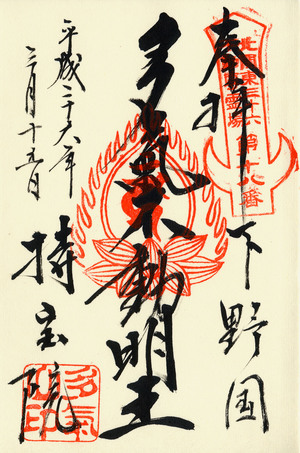 奉拝 下野国
北関東三十六
霊場第十八番
多氣不動明王
平成二十六年
三月十五日
持宝院